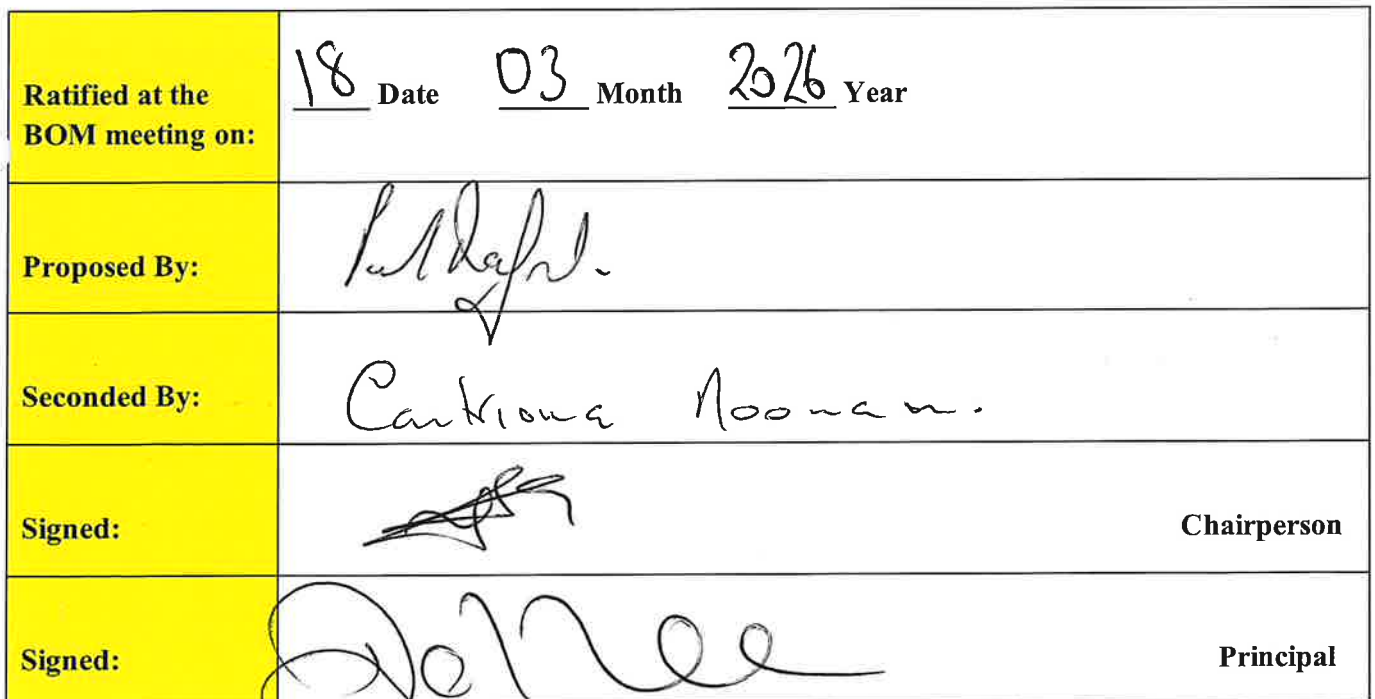 Ratified at the
BOM meeting on:
18 Date 03 Month 2026 Year
Proposed By:
Seconded By:
Noonan.
Signed:
Chairperson
Signed:
Principal